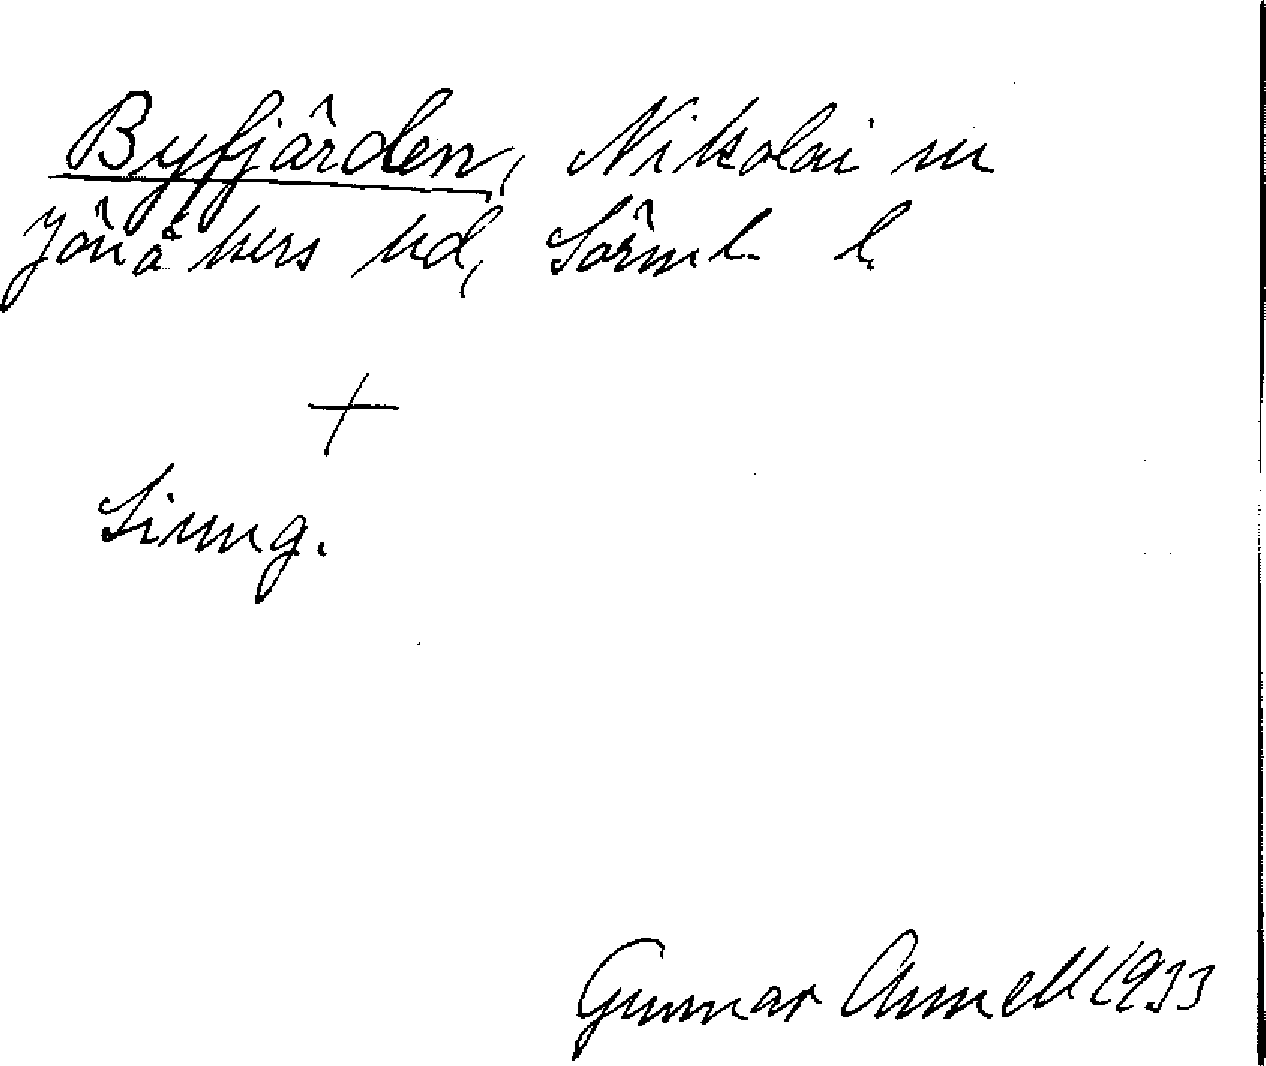 Byfjärden, Nikolai sn
Jönåkers hd, Sörml l.
+
Sinng.
Gunnar Annell 1933